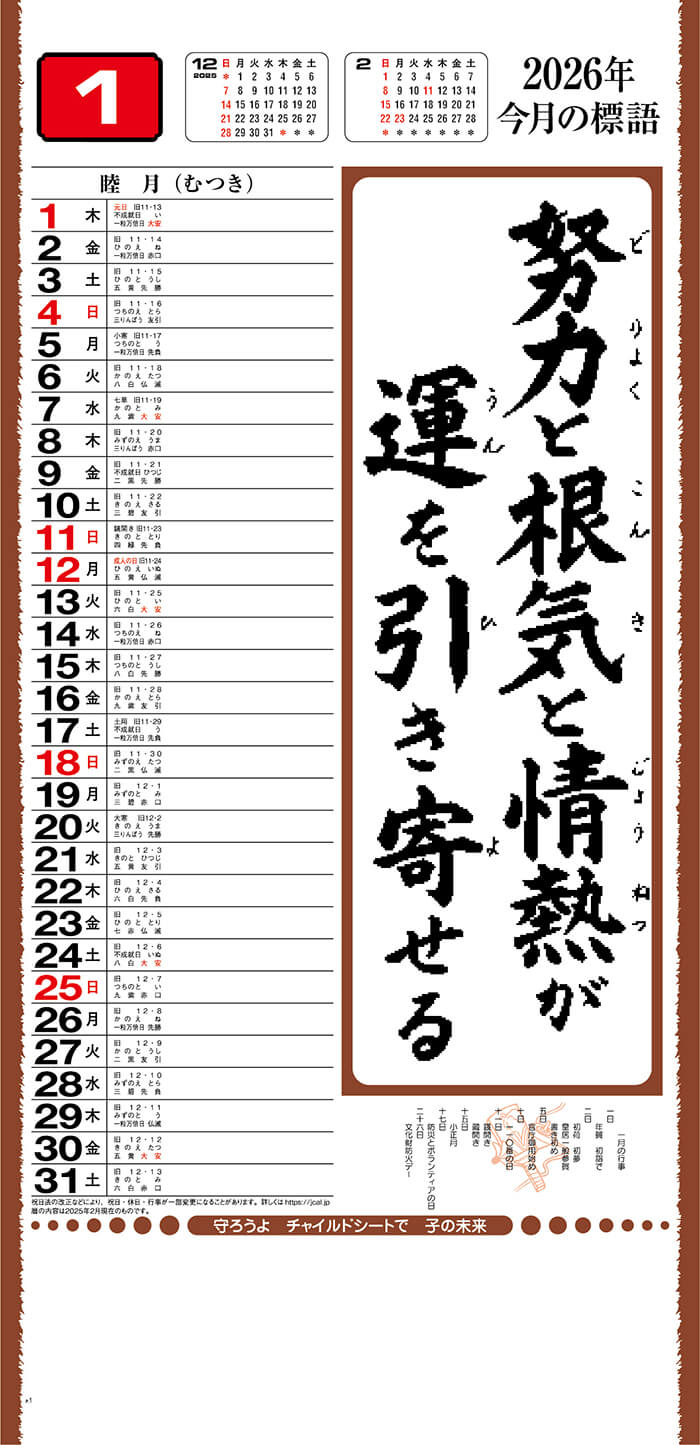 1
12
2025
日 月 火 水 木 金 土
* 1 2 3 4 5 6
7 8 9 10 11 12 13
14 15 16 17 18 19 20
21 22 23 24 25 26 27
28 29 30 31 * * *
2
日 月 火 水 木 金 土
1 2 3 4 5 6 7
8 9 10 11 12 13 14
15 16 17 18 19 20 21
22 23 24 25 26 27 28
* * * * * * *
2026年
今月の標語
睦 月（むつき）
1 木 元日 旧11・13
不成就日 い
一粒万倍日 大安
2 金 旧 11・14
ひのえ ね
一粒万倍日 赤口
3 土 旧 11・15
ひのと うし
五黄先勝
4 日 旧 11・16
つちのえ とら
三りんぼう 友引
5 月 小寒 旧11・17
つちのと う
一粒万倍日 先負
6 火 旧 11・18
かのえ たつ
八白仏滅
7 水 七草 旧11・19
かのと み
九紫 大安
8 木 旧 11・20
みずのえ うま
三りんぼう 赤口
9 金 旧 11・21
不成就日 ひつじ
二黒先勝
10 土 旧 11・22
きのえ さる
三碧友引
11 日 鏡開き 旧11・23
きのと とり
四緑先負
12 月 成人の日 旧11・24
ひのえ いぬ
五黄仏滅
13 火 旧 11・25
ひのと い
六白 大安
14 水 旧 11・26
つちのえ ね
一粒万倍日 赤口
15 木 旧 11・27
つちのと うし
八白先勝
16 金 旧 11・28
かのえ とら
九紫友引
17 土 土用 旧11・29
不成就日 う
一粒万倍日 先負
18 日 旧 11・30
みずのえ たつ
二黒仏滅
19 月 旧 12・1
みずのと み
三碧赤口
20 火 大寒 旧12・2
きのえ うま
三りんぼう 先勝
21 水 旧 12・3
きのと ひつじ
五黄友引
22 木 旧 12・4
ひのえ さる
六白先負
23 金 旧 12・5
ひのと とり
七赤仏滅
24 土 旧 12・6
不成就日 いぬ
八白 大安
25 日 旧 12・7
つちのと い
九紫赤口
26 月 旧 12・8
かのえ ね
一粒万倍日 先勝
27 火 旧 12・9
かのと うし
二黒友引
28 水 旧 12・10
みずのえ とら
三碧先負
29 木 旧 12・11
みずのと う
一粒万倍日 仏滅
30 金 旧 12・12
きのえ たつ
五黄 大安
31 土 旧 12・13
きのと み
六白赤口
努力と根気と情熱が
どりょく こんき じょうねつ
運を引き寄せる
うん ひ よ
一月の行事
一日
年賀 初詣で
二日
初荷 初夢
皇居一般参賀
書き初め
五日
官庁御用始め
十日
一一〇番の日
十一日
鏡開き
蔵開き
十五日
小正月
十七日
防災とボランティアの日
二十六日
文化財防火デー
祝日法の改正などにより、祝日・休日・行事が一部変更になることがあります。詳しくはhttps://jcal.jp
暦の内容は2025年2月現在のものです。
守ろうよ チャイルドシートで 子の未来